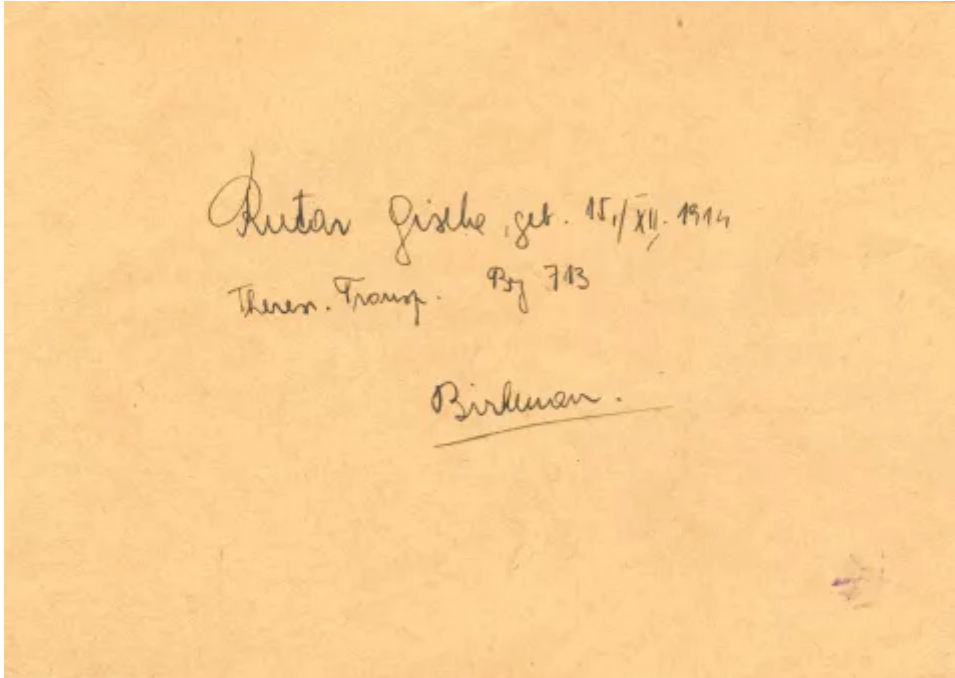 Rutar Giselle, geb. 15./XII. 1914
Theres. Transp. By 713
Birkenau.